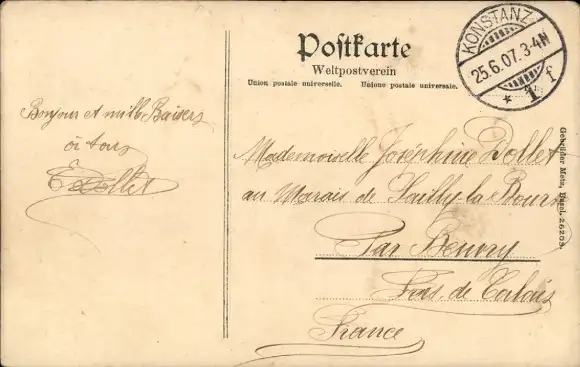 Postkarte
Weltpostverein
Union postale universelle. Unione postale universale.
KONSTANZ
25.6.07.3-4N
* 1 f
Bonjour et mille Baisers
à tous
E Dollet
Mademoiselle Joséphine Dollet
au Marais de Sailly-la-Bourse
Par Beuvry
Pas de Calais
France
Gebrüder Metz, Basel. 26203.